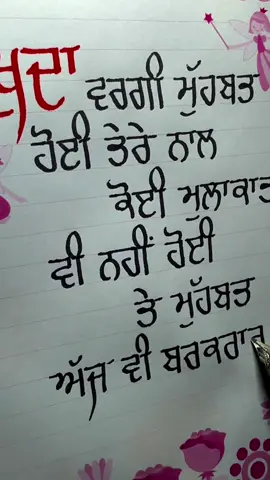 ਖੁਦਾ ਵਰਗੀ ਮੁੱਹਬਤ
ਹੋਈ ਤੇਰੇ ਨਾਲ
ਕੋਈ ਮੁਲਾਕਾਤ
ਵੀ ਨਹੀਂ ਹੋਈ
ਤੇ ਮੁੱਹਬਤ
ਅੱਜ ਵੀ ਬਰਕਰਾਰ